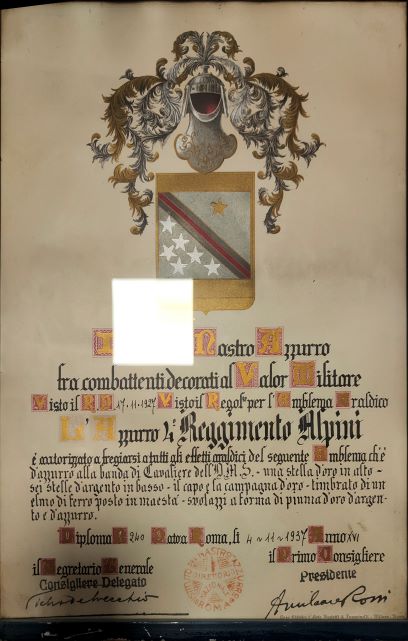 Nastro Azzurro
fra combattenti decorati al Valor Militare
Visto il R.D. 17-11-1927 Visto il Regol° per l'Emblema Araldico
L'Azzurro 4° Reggimento Alpini
è autorizzato a fregiarsi a tutti gli effetti araldici del seguente Emblema ch'è
d'azzurro alla banda di Cavaliere dell'O.M.S. - una stella d'oro in alto -
sei stelle d'argento in basso - il capo e la campagna d'oro - timbrato di un
elmo di ferro posto in maestà - svolazzi a forma di piuma d'oro d'argen-
to e d'azzurro.
Diploma N° 240 Data Roma, li 4-11-1937 Anno XVI
il Segretario Generale il Primo Consigliere
Consigliere Delegato Presidente
NASTRO AZZURRO
DIRETTORIO
ROMA